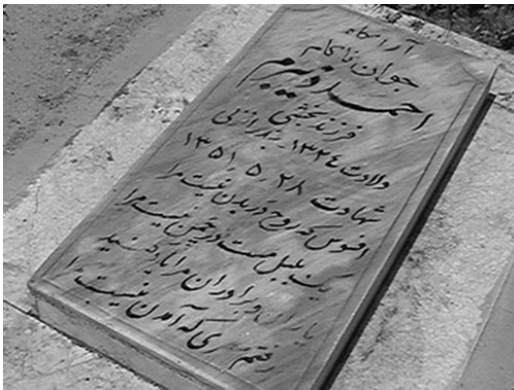 آرامگاه
جوان ناکام
احمد زیبرم
فرزند بخشی
ولادت ۱۳۲۴ بندر انزلی
شهادت ۲۸ ر ۵ ر ۱۳۵۱
افسوس که روح در بدن نیست مرا
یک بلبل مست در چمن نیست مرا
یاران و برادران مرا یاد کنید
رفتم سفری که آمدن نیست مرا